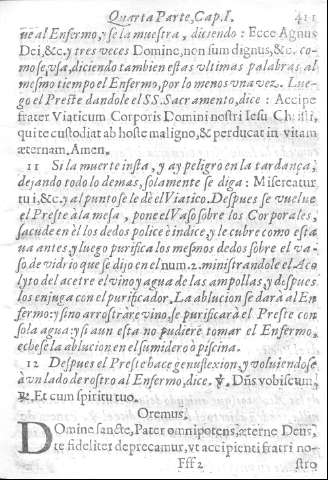 Quarta Parte, Cap. I. 411
ue al Enfermo, y se la muestra, diciendo: Ecce Agnus
Dei, &c. y tres veces Domine, non sum dignus, &c. co-
mo se usa, diciendo tambien estas vltimas palabras al
mesmo tiempo el Enfermo, por lo menos una vez. Lue-
go el Preste dandole el SS. Sacramento, dice: Accipe
frater Viaticum Corporis Domini nostri Iesu Christi,
qui te custodiat ab hoste maligno, & perducat in vitam
æternam. Amen.
11 Si la muerte insta, y ay peligro en la tardança,
dejando todo lo demas, solamente se diga: Misereatur
tui, &c. y al punto se le dè el Viatico. Despues se vuelve
el Preste à la mesa, pone el Vaso sobre los Corporales,
sacude en èl los dedos police è indice, y le cubre como esta
ua antes, y luego purifica los mesmos dedos sobre el va-
so de vidrio que se dijo en el num. 2. ministrandole el Aco
lyto del acetre el vino y agua de las ampollas, y despues
los enjuga con el purificador. La ablucion se darà al En-
fermo: y si no arrostràre vino, se purificarà el Preste con
sola agua: y si aun esta no pudiere tomar el Enfermo,
echese la ablucion en el sumidero ò piscina.
12 Despues el Preste hace genuflexion, y voluiendose
à un lado de rostro al Enfermo, dice. ℣. Dñs vobiscum,
℟. Et cum spiritu tuo.
Oremus.
Domine sancte, Pater omnipotens, æterne Deus,
te fideliter deprecamur, vt accipienti fratri no-
Fff 2 stro